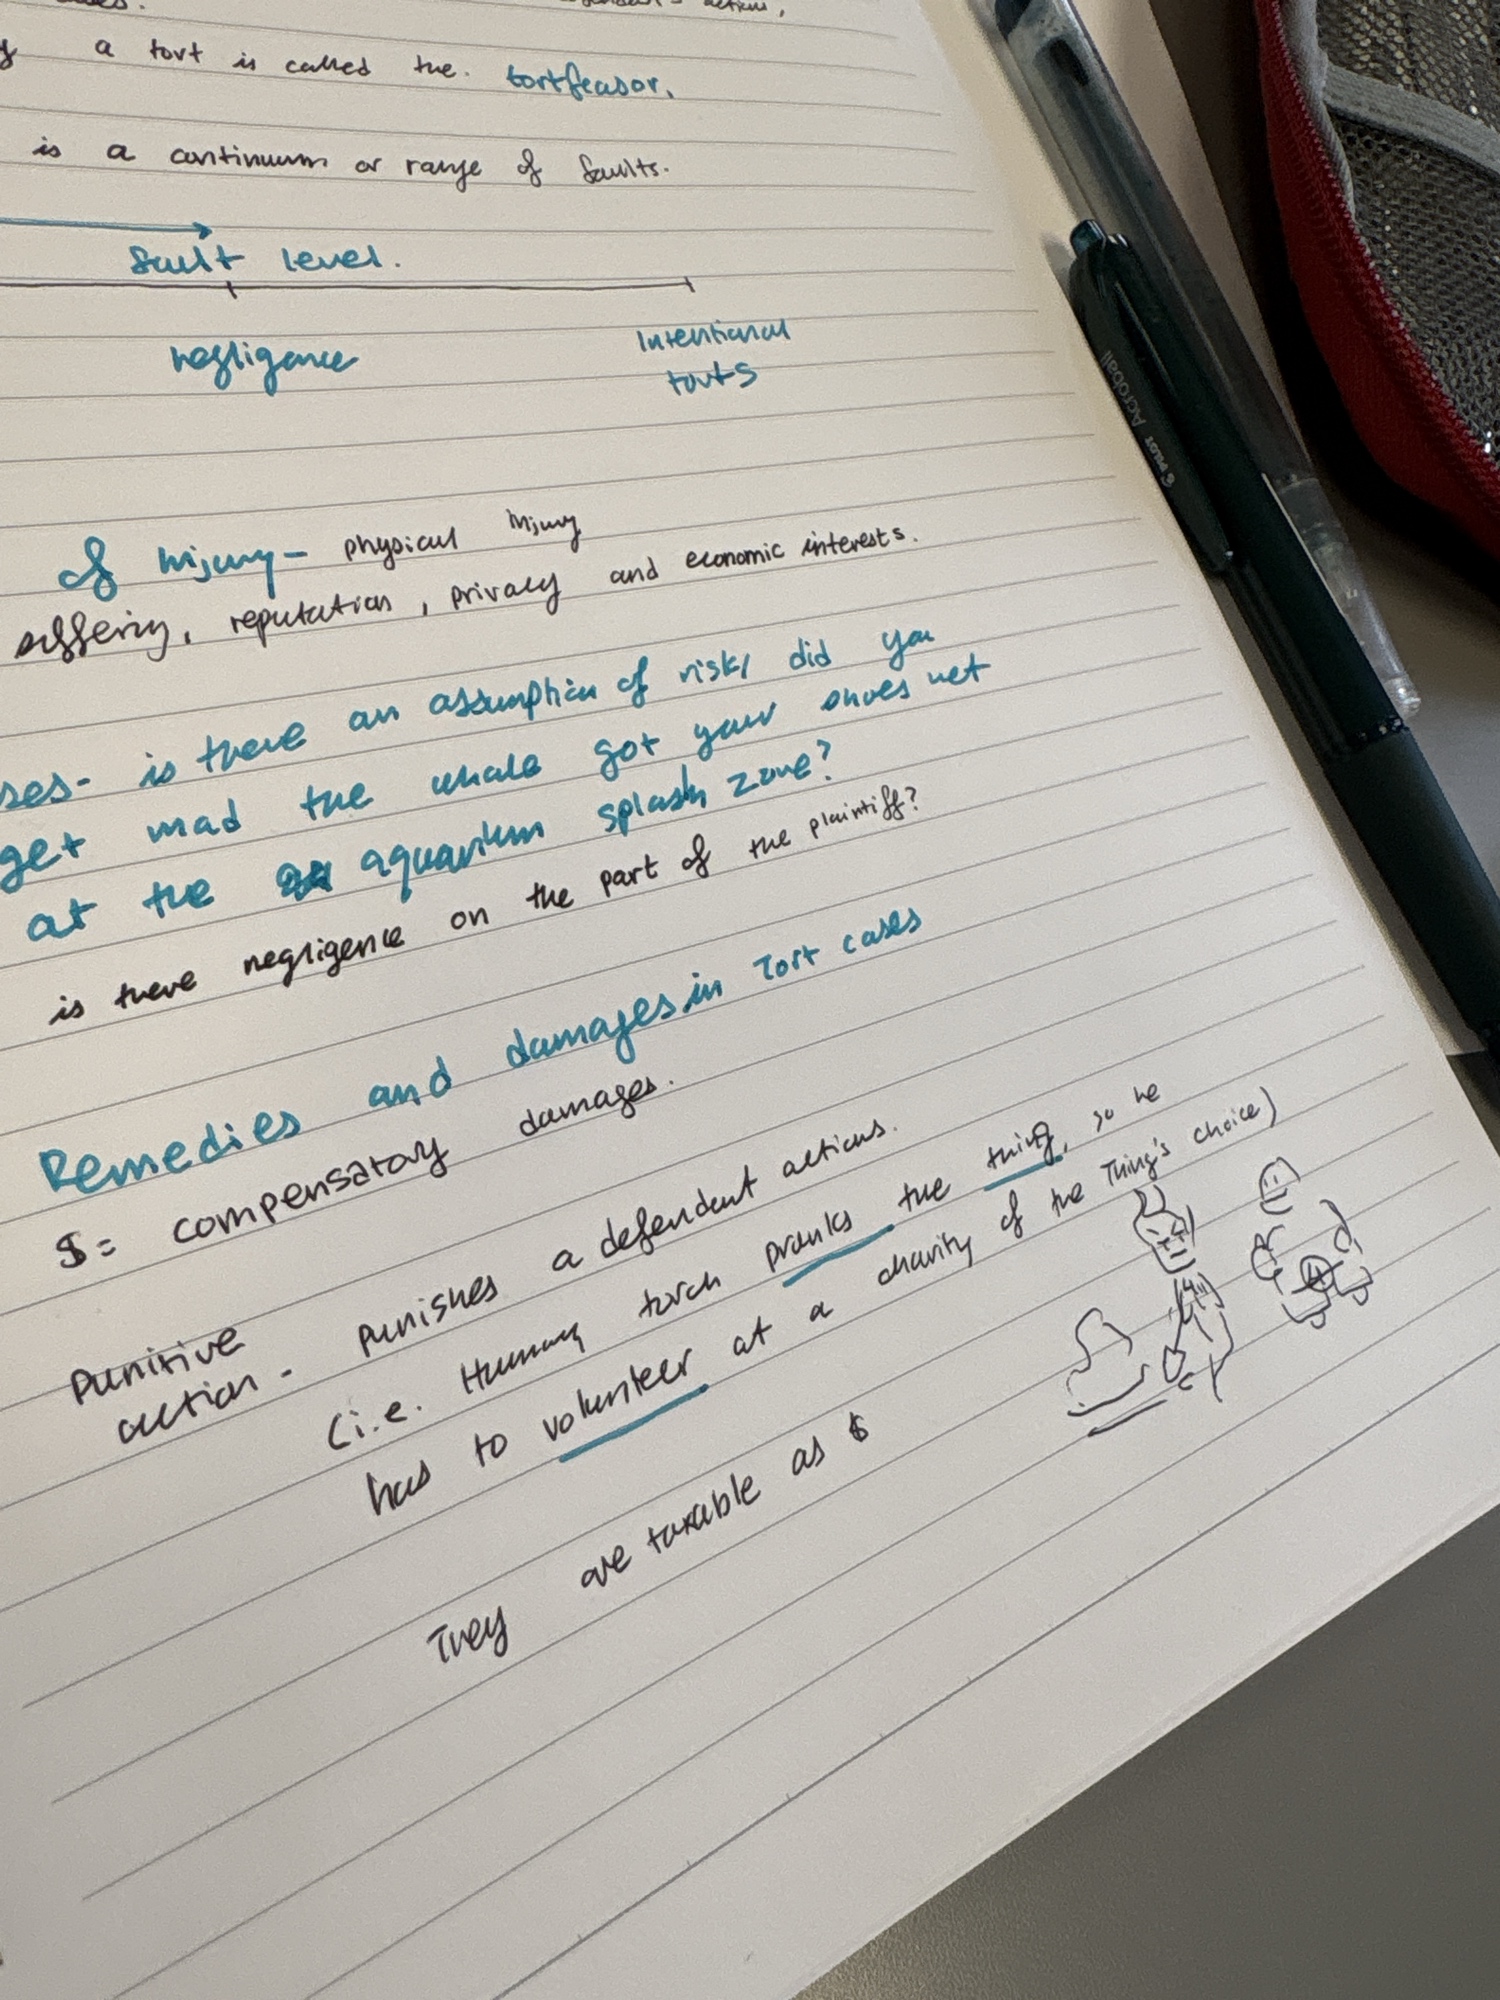 a tort is called the tortfeasor.
is a continuum or range of faults.
fault level.
negligence
Intentional
torts
of injury- physical injury
suffering, reputation, privacy and economic interests.
ses- is there an assumption of risk/ did you
get mad the whale got your shoes wet
at the aquarium splash zone?
is there negligence on the part of the plaintiff?
Remedies and damages in Tort cases
$= compensatory damages.
Punitive
action - punishes a defendent actions.
(i.e. Human torch pranks the thing, so he
has to volunteer at a charity of the Thing's choice)
They are taxable as $
PILOT Acroball